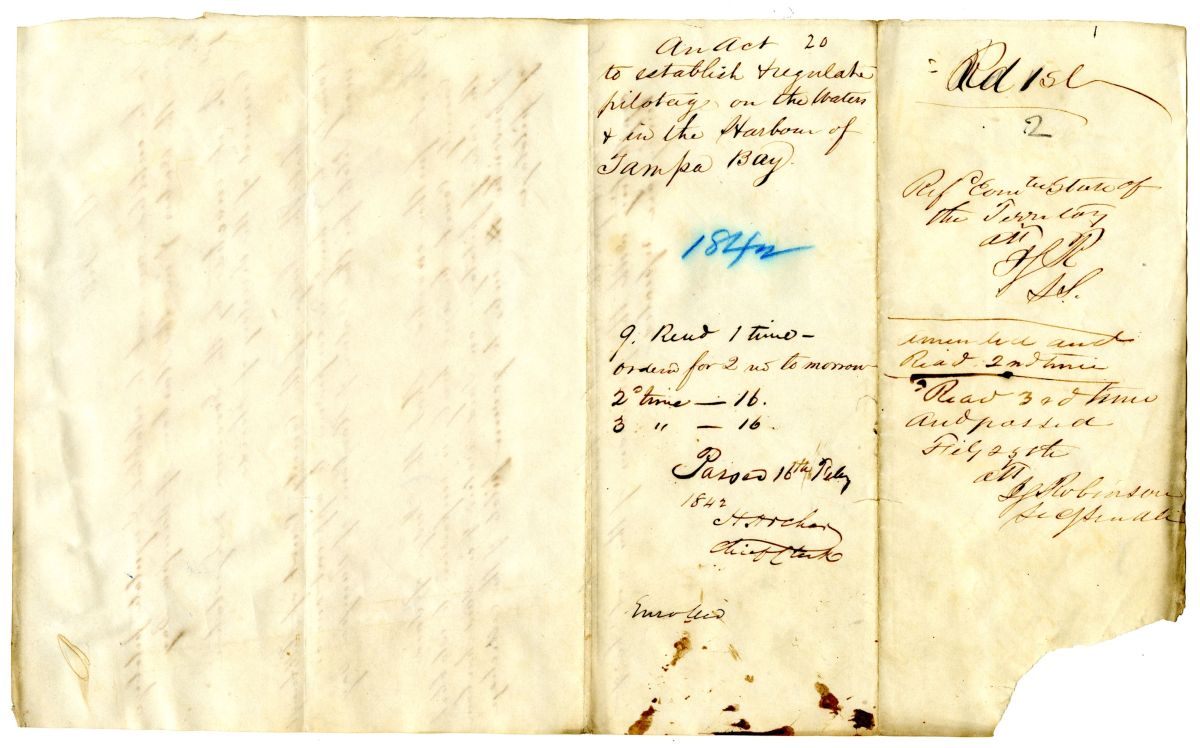 An Act 20
to establish & regulate
pilotage on the Waters
& in the Harbour of
Tampa Bay.
1842
9. Read 1 time –
orderd for 2nd to morrow
2d time — 16.
3 " — 16.
Passed 16th Feby
1842
H Archer
Chief Clerk
Enrolled
1
Rd 1st
2
Refd Comtee State of
the Territory
att
J R
S S.
amended and
Read 2nd time
Read 3rd time
and passed
Feby
att
Robinson
Sec Senate